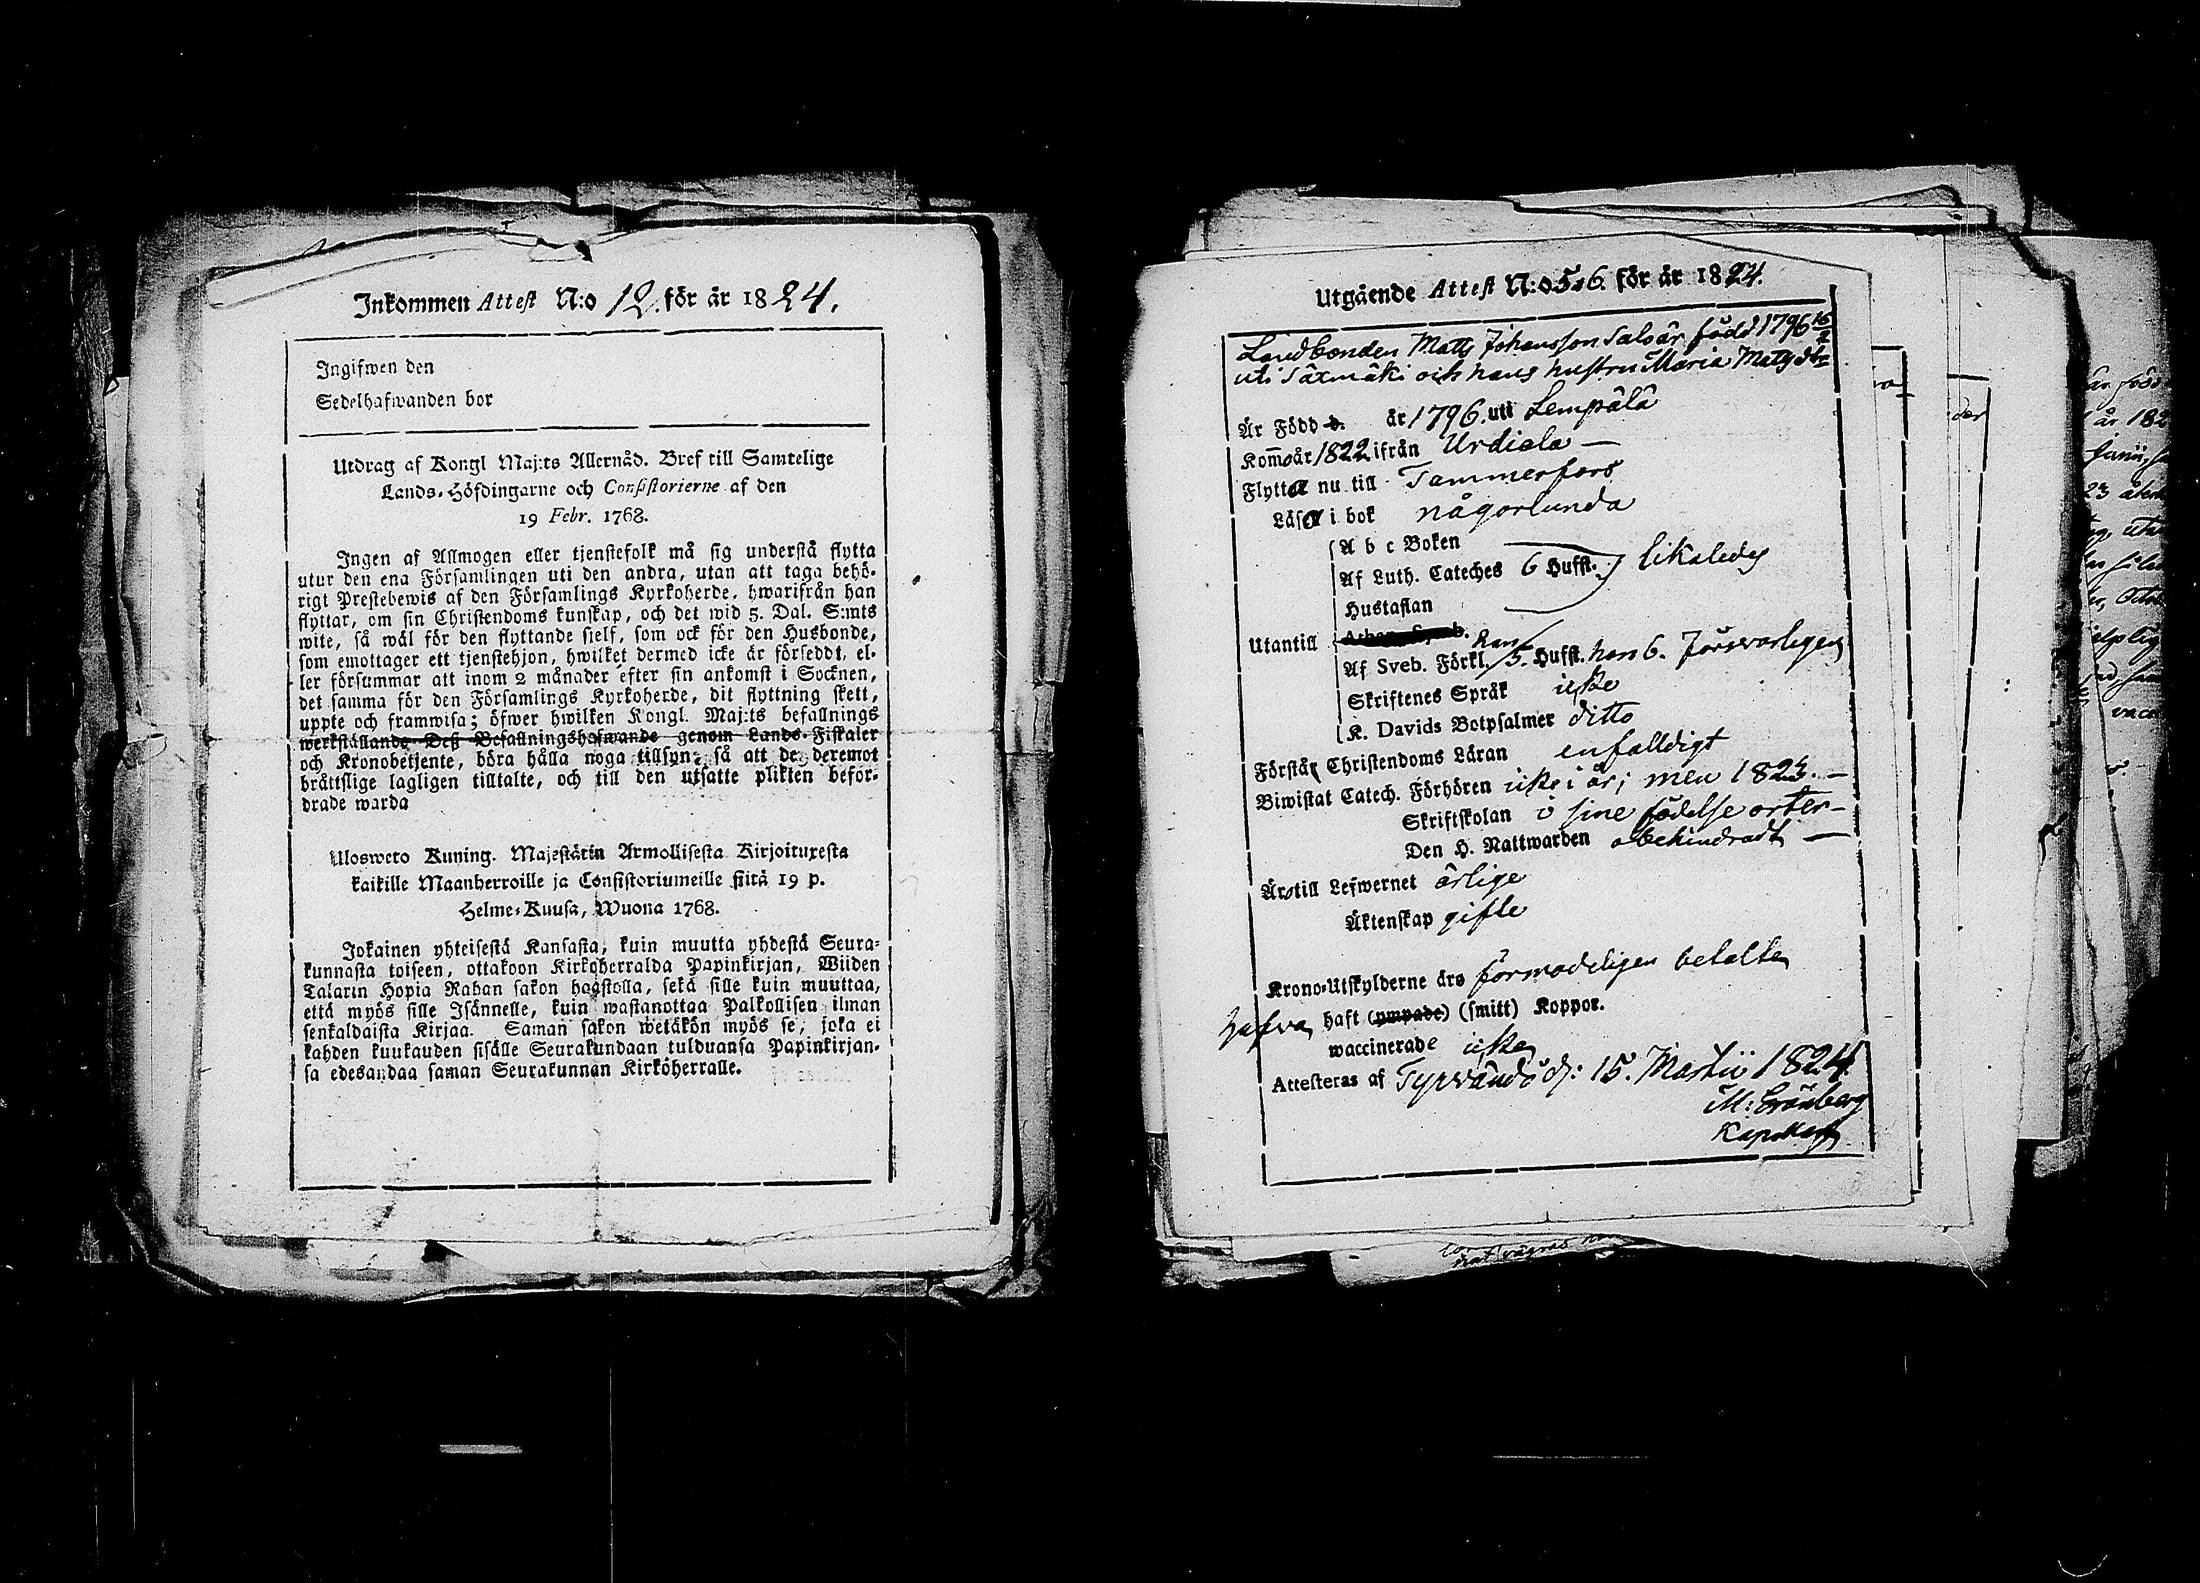 Inkommen Attest N:o 12. för år 1824.
Ingifwen den
Sedelhafwanden bor
Utdrag af Kongl Maj:ts Allernåd. Bref till Samtelige
Lands-Höfdingarne och Consistorierne af den
19 Febr. 1768.
Ingen af Allmogen eller tjenstefolk må sig understå flytta
utur den ena Församlingen uti den andra, utan att taga behö-
rigt Prestebewis af den Församlings Kyrkoherde, hwarifrån han
flyttar, om sin Christendoms kunskap, och det wid 5. Dal. S:mts
wite, så wäl för den flyttande sielf, som ock för den Husbonde,
som emottager ett tjenstehjon, hwilket dermed icke är förseddt, el-
ler försummar att inom 2 månader efter sin ankomst i Socknen,
det samma för den Församlings Kyrkoherde, dit flyttning skett,
uppte och framwisa; öfwer hwilken Kongl. Maj:ts befallnings
werkställande Deß Befallningshafwande genom Lands-Fiskaler
och Kronobetjente, böra hålla noga tillsyn, så att de deremot
bråttslige lagligen tilltalte, och till den utsatte plikten befor-
drade warda
Ulosweto Kuning. Majestätin Armollisesta Kirjoituxesta
kaikille Maanherroille ja Consistoriumeille siitä 19 p.
Helme-Kuusa, Wuona 1768.
Jokainen yhteisestä Kansasta, kuin muutta yhdestä Seura-
kunnasta toiseen, ottakoon Kirkoherralda Papinkirjan, Wiiden
Talarin Hopia Rahan sakon haastolla, sekä sille kuin muuttaa,
että myös sille Isännelle, kuin wastanottaa Palkollisen ilman
senkaldaista Kirjaa. Saman sakon wetäkön myös se, joka ei
kahden kuukauden sisälle Seurakundaan tulduansa Papinkirjan-
sa edesandaa saman Seurakunnan Kirköherralle.
Utgående Attest N:o 5 o 6. för år 1824.
Landbonden Matts Johansson Salvär född 1796 16/2
uti Särmäki och hans hustru Maria Matsdr
Är Född d. år 1796. uti Lempälä
Kommo år 1822 ifrån Urdiala —
Flytta nu till Tammerfors
Läsa i bok någorlunda
A b c Boken
Af Luth. Cateches 6 Hufst. likaledes
Hustaflan
Utantill Athan. Symb. han
Af Sveb. Förkl. 5. Hufst. hon 6. försvarligen
Skriftenes Språk icke
K. Davids Botpsalmer ditto
Förstå Christendoms Läran enfalldigt
Biwistat Catech. Förhören icke i år; men 1823. —
Skriftskolan i sine födelse orter —
Den H. Nattwarden obehindradt —
Äro till Lefwernet ärlige
Äktenskap gifte
Krono-Utskylderne äro förmodeligen betalte
hafva haft (ympade) (smitt) Koppor.
waccinerade icke
Attesteras af Tyrvändö d: 15. Martii 1824.
M: Grönberg